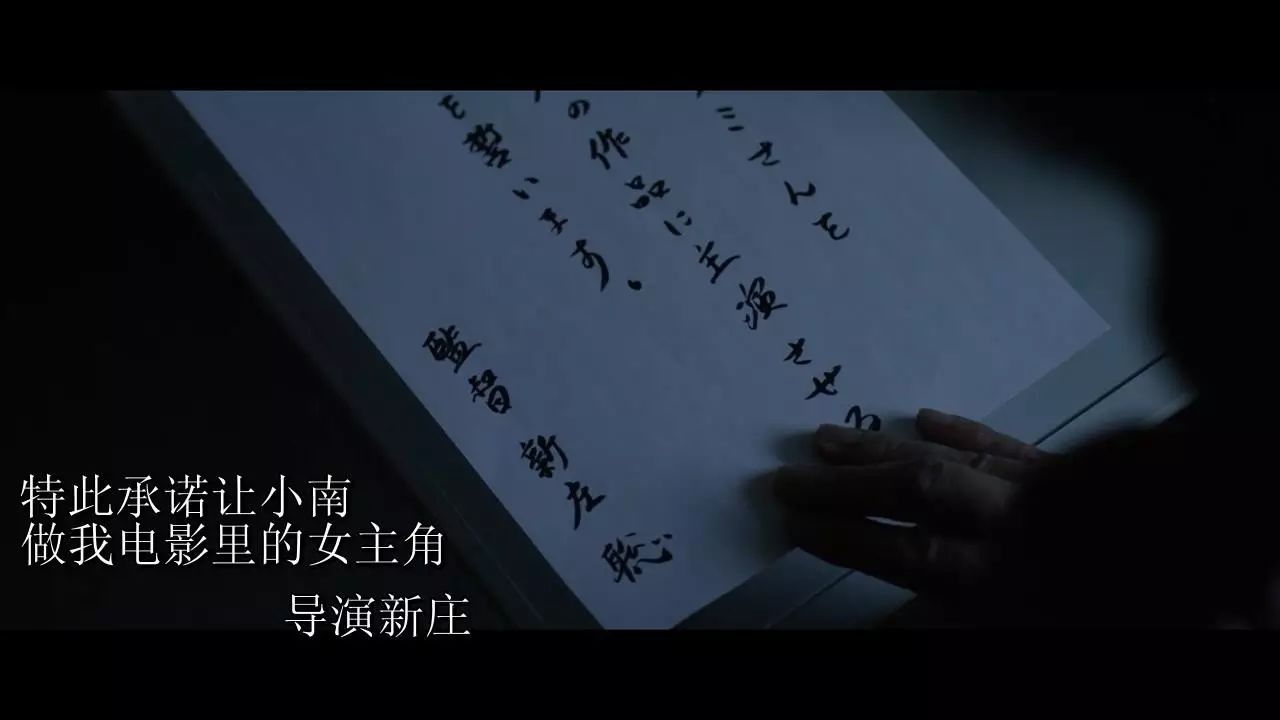 ミさんを
の作品に主演させる
を誓います。
監督 新庄 聡
特此承诺让小南
做我电影里的女主角
导演新庄